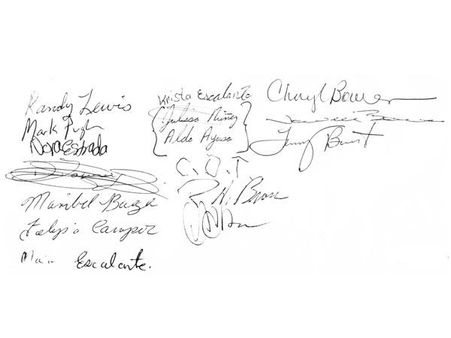 Randy Lewis
Mark Pugh
Nora Estrada
Maribel Baeza
Felipe Campoz
Escalante.
Krista Escalante
Julissa Nuñez
Aldo Ayuso
C.O.T
R. N. Bower
Cheryl Bower
Bower
Bust